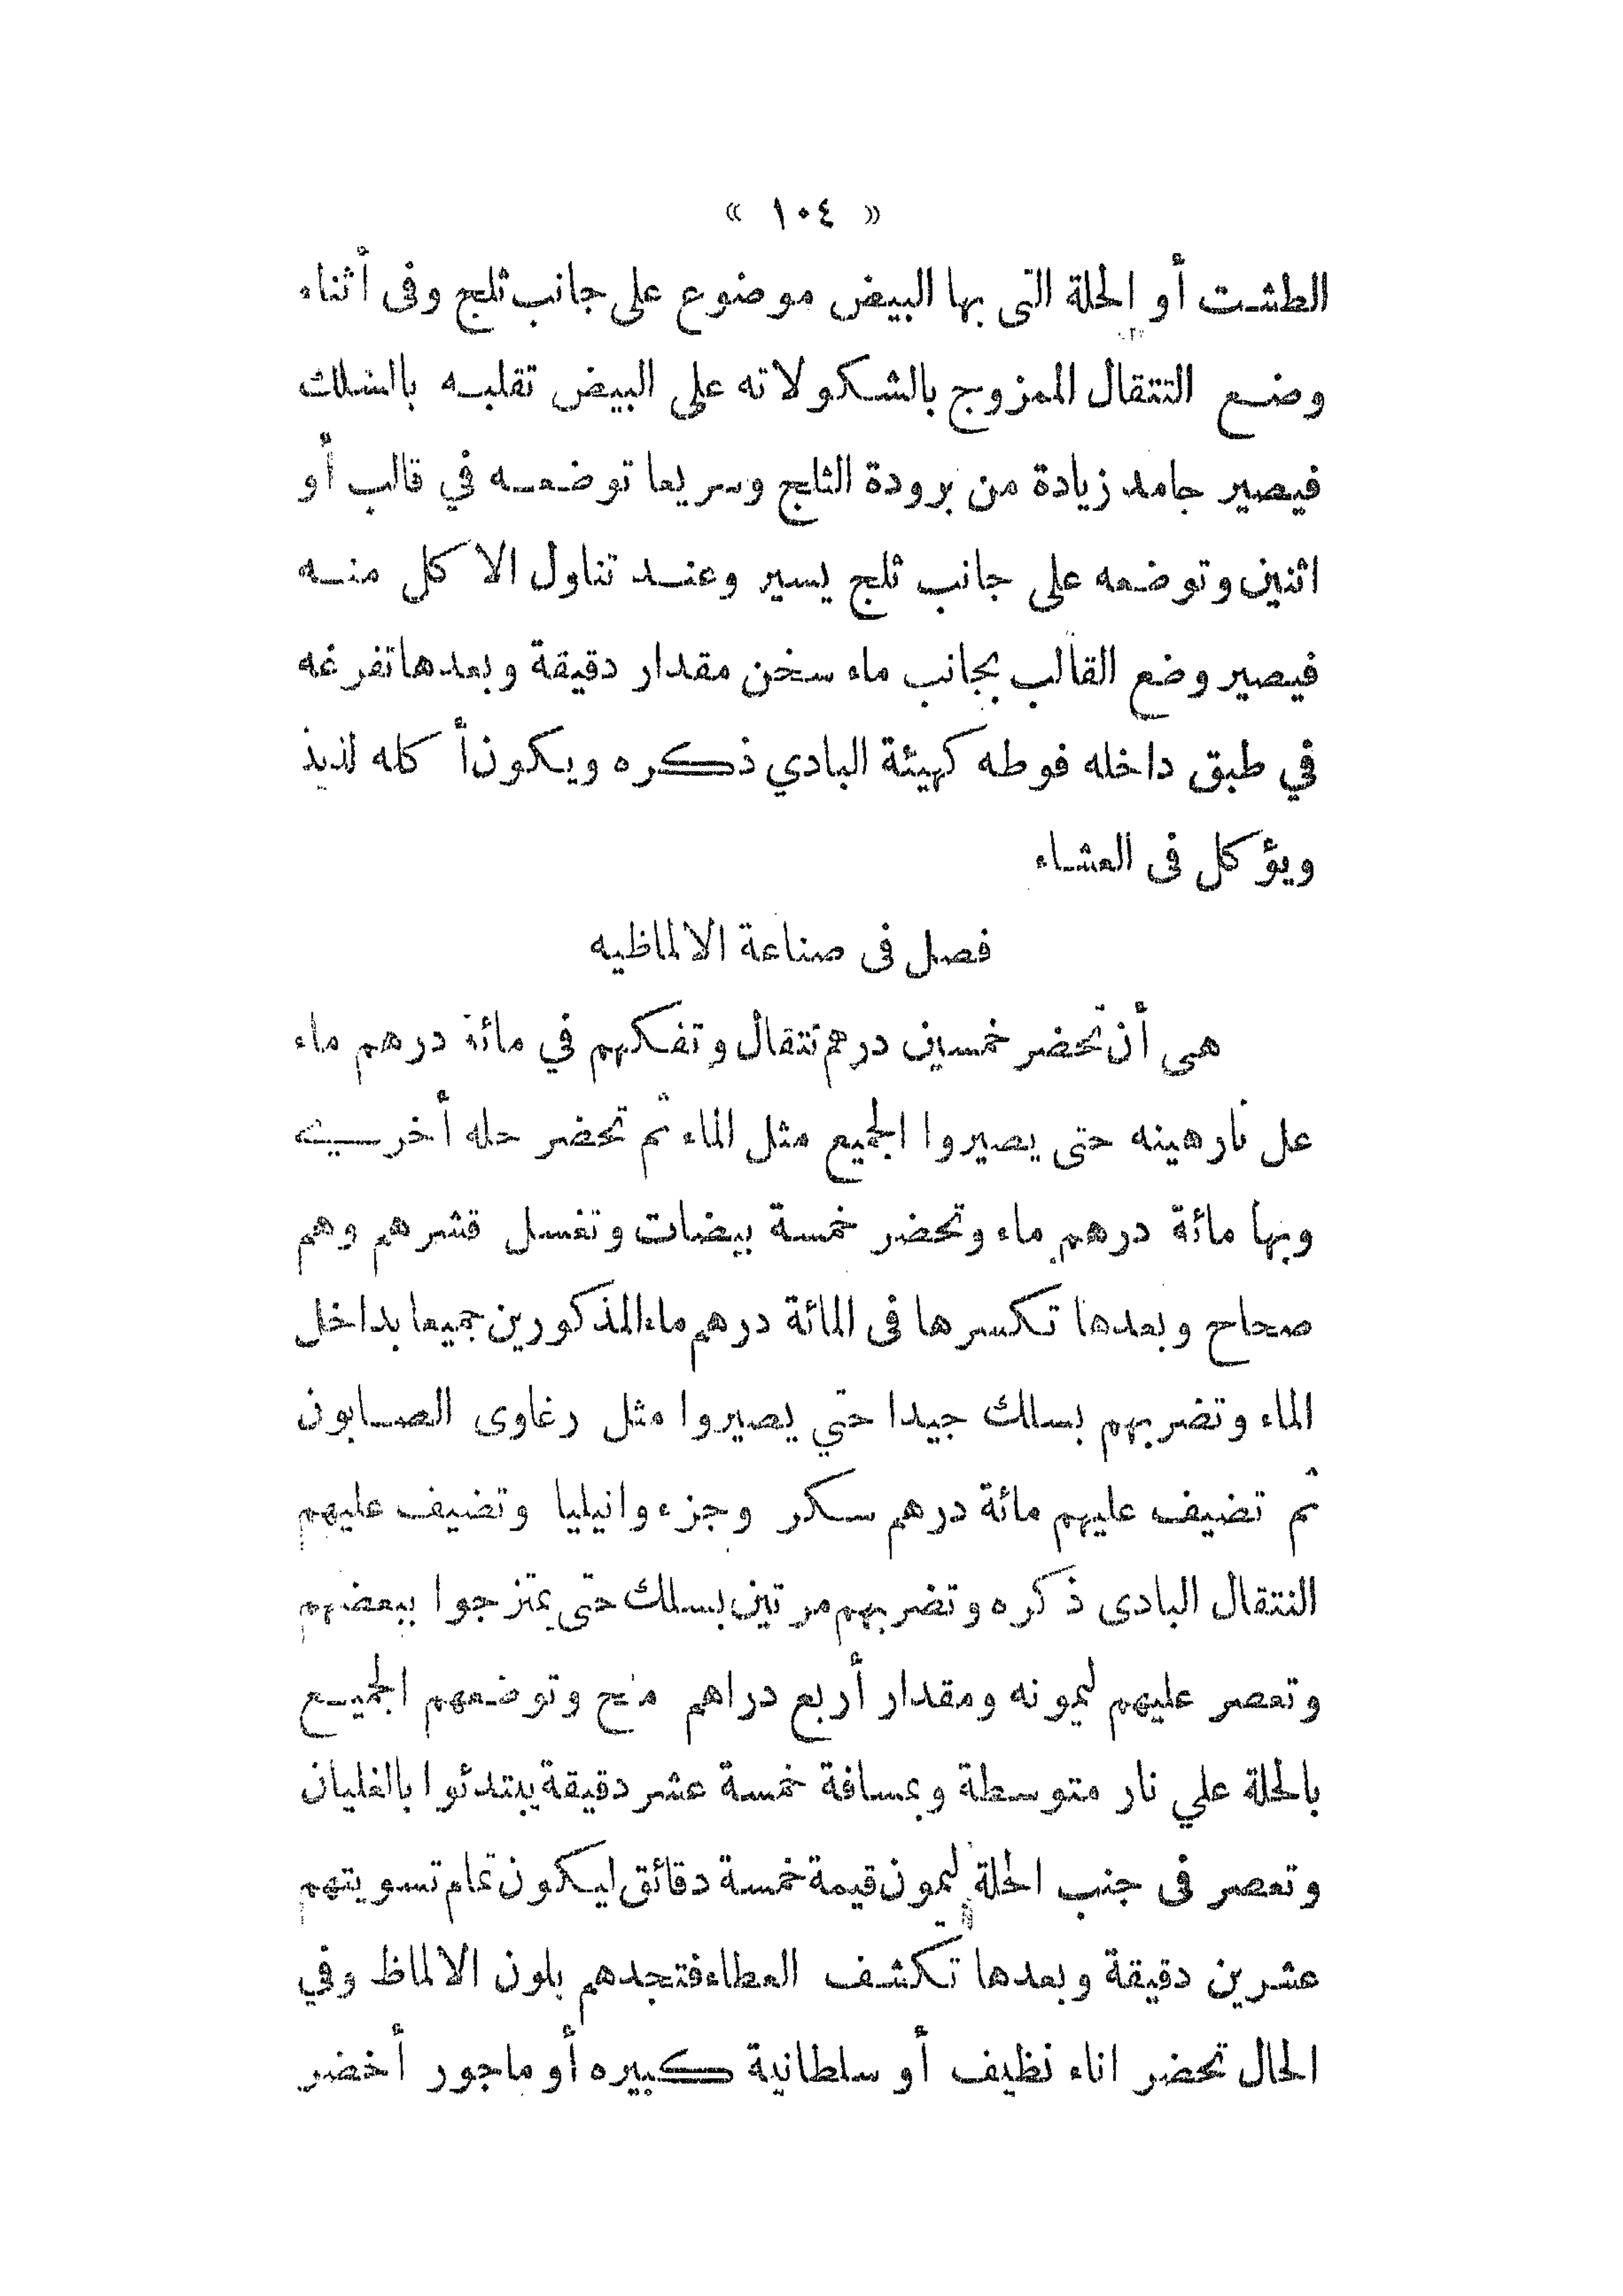 « ١٠٤ »
الطشت أو الحلة التى بها البيض موضوع على جانب ثلج وفى أثناء
وضع التتقال الممزوج بالشكولاته على البيض تقلبه بالسلك
فيصير جامد زيادة من برودة الثلج وسريعا توضعه في قالب أو
اثنين وتوضعه على جانب ثلج يسير وعند تناول الاكل منه
فيصير وضع القالب بجانب ماء سخن مقدار دقيقة وبعدها تفرغه
في طبق داخله فوطه كهيئة البادي ذكره ويكون أكله لذيذ
ويؤكل فى العشاء
فصل فى صناعة الالماظيه
هى أن تحضر خمسين درهم نتقال وتفكهم في مائة درهم ماء
على نار هينه حتى يصيروا الجميع مثل الماء ثم تحضر حله أخرى
وبها مائة درهم ماء وتحضر خمسة بيضات وتغسل قشرهم وهم
صحاح وبعدها تكسرها فى المائة درهم ماء المذكورين جميعا بداخل
الماء وتضربهم بسلك جيدا حتي يصيروا مثل رغاوى الصابون
ثم تضيف عليهم مائة درهم سكر وجزء وانيليا وتضيف عليهم
النتقال البادى ذكره وتضربهم مرتين بسلك حتى يمتزجوا ببعضهم
وتعصر عليهم ليمونه ومقدار أربع دراهم ملح وتوضعهم الجميع
بالحلة علي نار متوسطة وبمسافة خمسة عشر دقيقة يبتدئوا بالغليان
وتعصر فى جنب الحلة ليمون قيمة خمسة دقائق ليكون تمام تسويتهم
عشرين دقيقة وبعدها تكشف الغطاء فتجدهم بلون الالماظ وفي
الحال تحضر اناء نظيف أو سلطانية كبيره أو ماجور أخضر